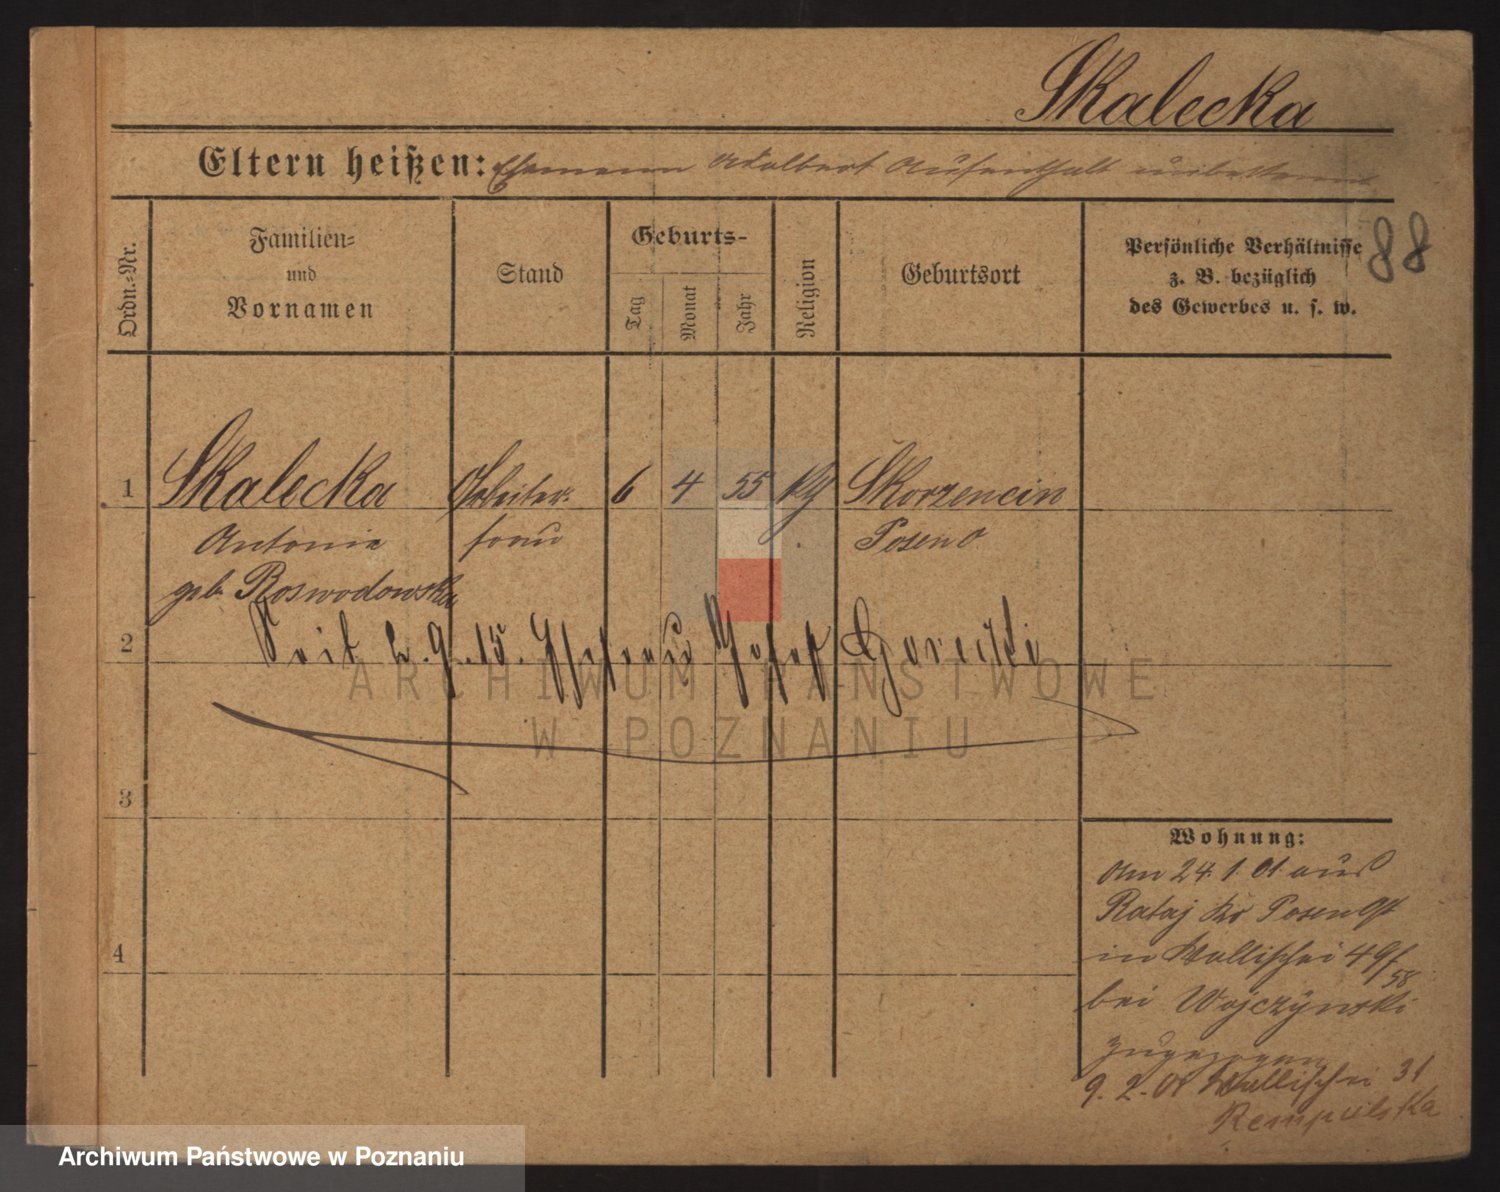 Skalecka
Eltern heißen: Ehemann Adalbert Aufenthalt unbekannt
88
Ordn.-Nr.
Familien-
und
Vornamen
Stand
Geburts-
Tag
Monat
Jahr
Religion
Geburtsort
Persönliche Verhältnisse
z. B. bezüglich
des Gewerbes u. s. w.
1 Skalecka Arbeiter- 6 4 55 Skorzencin
Antonie frau Posen O.
geb. Roswodowska
2
Seit 2.9.15. Ehefrau Josef Gorecki
3
4
Wohnung:
Am 24.1.01 aus
Rataj Krs Posen Ost
in Wallischei 49/58
bei Wojczynski
zugezogen
9.2.01 Wallischei 31
ARCHIWUM PAŃSTWOWE
W POZNANIU
Archiwum Państwowe w Poznaniu